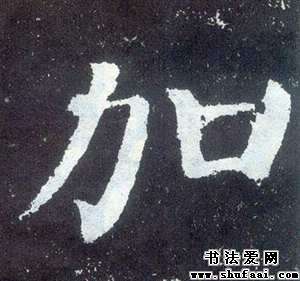 加
书法爱网
www.shufaai.com